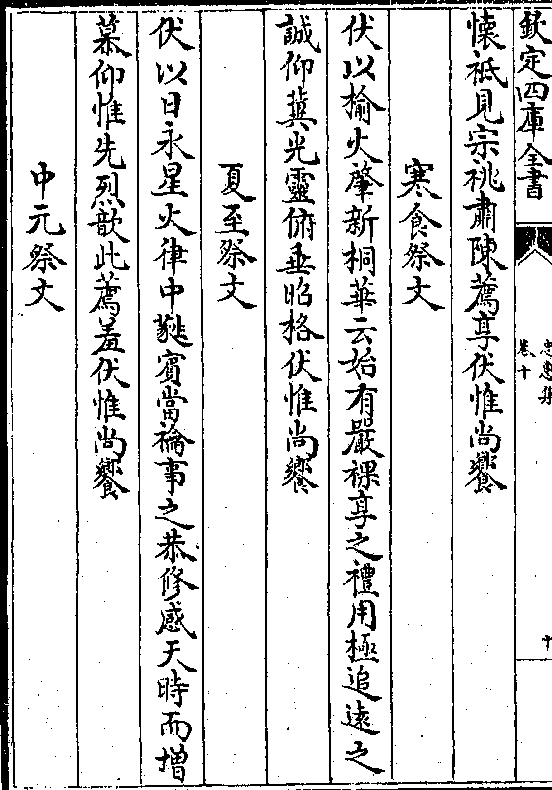 欽定四庫全書
忠惠集
卷十
十
懷祗見宗祧肅陳薦享伏惟尚饗
寒食祭文
伏以榆火肇新桐華云始有嚴祼享之禮用極追遠之
誠仰冀光靈俯垂昭格伏惟尚饗
夏至祭文
伏以日永星火律中蕤賓當禴事之恭修感天時而增
慕仰惟先烈歆此薦羞伏惟尚饗
中元祭文